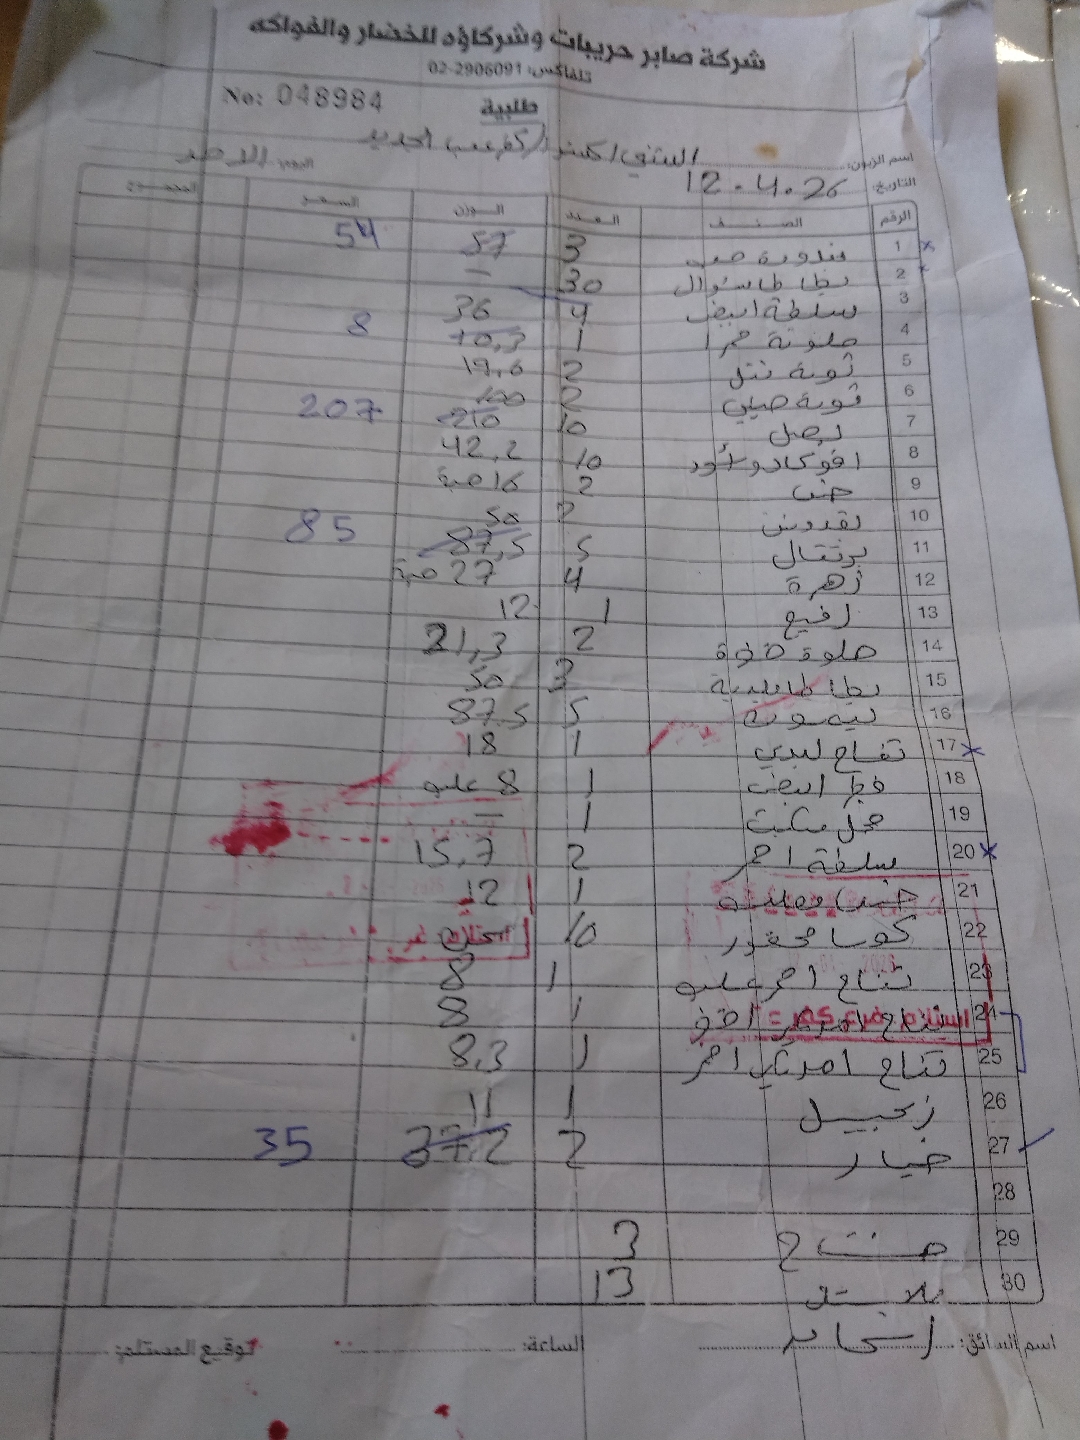 شركة صابر حريبات وشركاؤه للخضار والفواكه
تلفاكس: 02-2906091
No: 048984
طلبية
اسم الزبون: كفر عقب الجديد
اليوم: الاحد
التاريخ: 12.4.26
الرقم الصنف العدد الوزن السعر المجموع
1 بندورة حب 3 57 54
2 بطاطا 30 —
3 سلطة ابيض 4 36
4 ملونة حمرا 1 10,3 8
5 ثومة نتل 2 19,6
6 ثومة صيني 2 100
7 بصل 10 210 207
8 افوكادو 10 42,2
9 خس 2 16 حبة
10 بقدونس 2 50
11 برتقال 5 87,5 85
12 زهرة 4 27 حبة
13 رفيع 1 12
14 حلوة 2 21,3
15 بطاطا بلدية 3 50
16 ليمونة 5 87.5
17 تفاح 1 18
18 فطر ابيض 1 8 علبه
19 1 —
20 سلطة احمر 2 15,7
21 خس 1 12
22 كوسا محفور 10
23 تفاح احمر علبه 1 8
24 1 8
25 تفاح احمر 1 8,3
26 زنجبيل 1 11
27 خيار 2 37.2 35
28
29 3
30 13
اسم السائق: الساعة: توقيع المستلم: